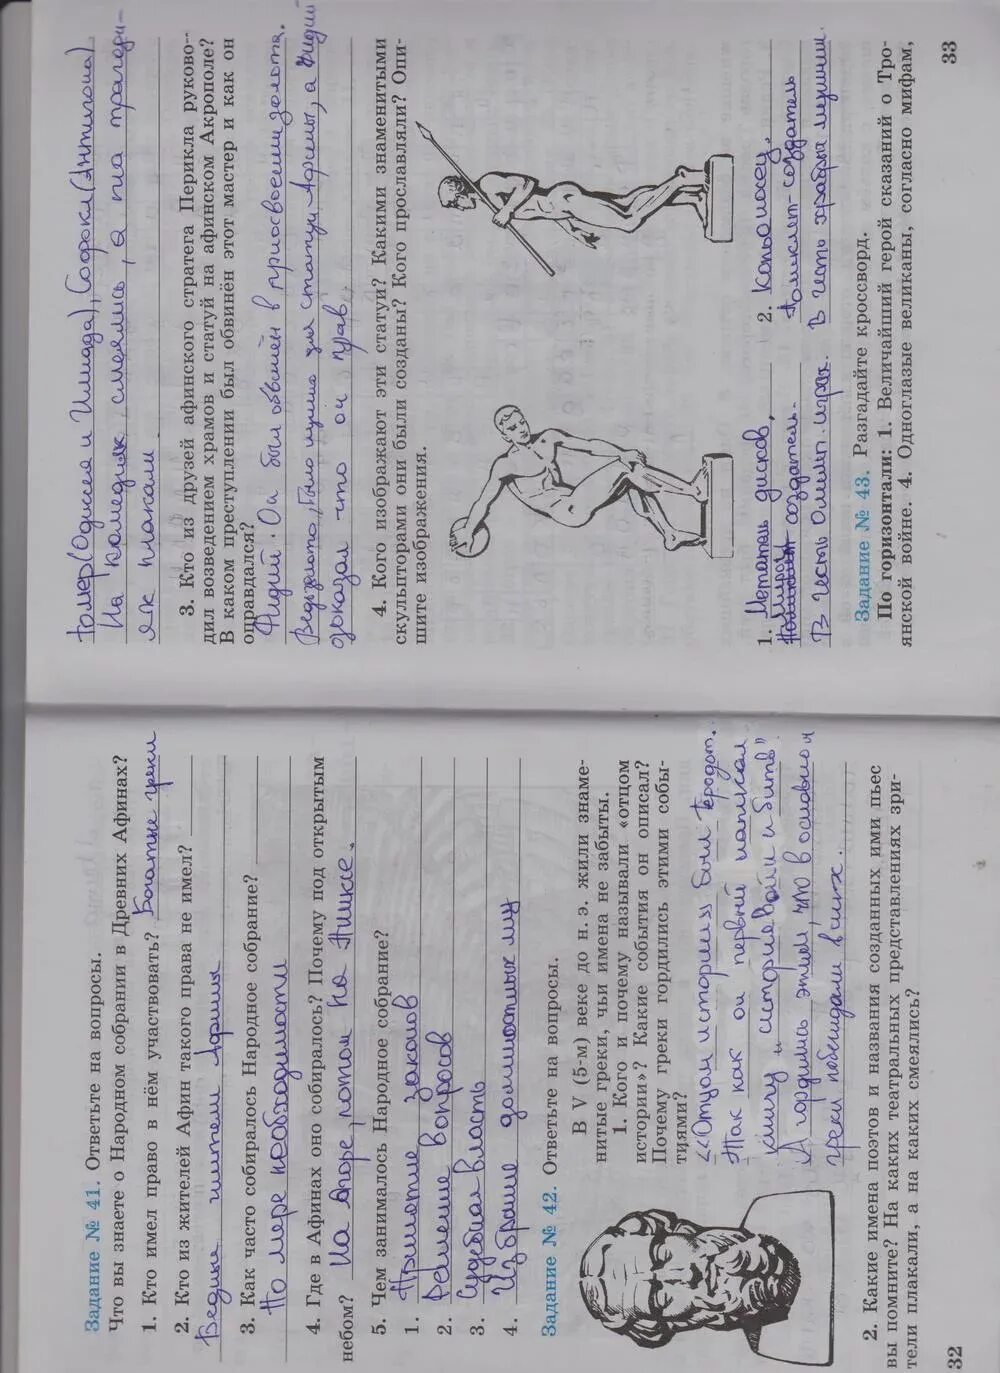 Задание № 41. Ответьте на вопросы.
Что вы знаете о Народном собрании в Древних Афинах?
1. Кто имел право в нём участвовать? Богатые греки
2. Кто из жителей Афин такого права не имел?
Бедные жители Афины
3. Как часто собиралось Народное собрание?
По мере необходимости
4. Где в Афинах оно собиралось? Почему под открытым
небом? На Агоре, потом на Пниксе.
5. Чем занималось Народное собрание?
1. Принятие законов
2. Решение вопросов
3. Судебная власть
4. Избрание должностных лиц
Задание № 42. Ответьте на вопросы.
В V (5-м) веке до н. э. жили знаме-
нитые греки, чьи имена не забыты.
1. Кого и почему называли «отцом
истории»? Какие события он описал?
Почему греки гордились этими собы-
тиями?
«Отцом истории» был Геродот.
Так как он первый написал
книгу и историю войн и битв"
А гордились этим, что в основном
греки побеждали в них.
2. Какие имена поэтов и названия созданных ими пьес
вы помните? На каких театральных представлениях зри-
тели плакали, а на каких смеялись?
32
Гомер (Одиссея и Илиада), Софокл (Антигона)
На комедиях смеялись, а на трагеди-
ях плакали
3. Кто из друзей афинского стратега Перикла руково-
дил возведением храмов и статуй на афинском Акрополе?
В каком преступлении был обвинён этот мастер и как он
оправдался?
Фидий. Он был обвинён в присвоении золота.
было нужно для статуи Афины, а Фидий
доказал что он прав.
4. Кого изображают эти статуи? Какими знаменитыми
скульпторами они были созданы? Кого прославляли? Опи-
шите изображения.
1. Метатель дисков,
Мирон создатель.
В честь Олимп. игры.
2. Копьеносец,
Поликлет-создатель
В честь
Задание № 43. Разгадайте кроссворд.
По горизонтали: 1. Величайший герой сказаний о Тро-
янской войне. 4. Одноглазые великаны, согласно мифам,
33